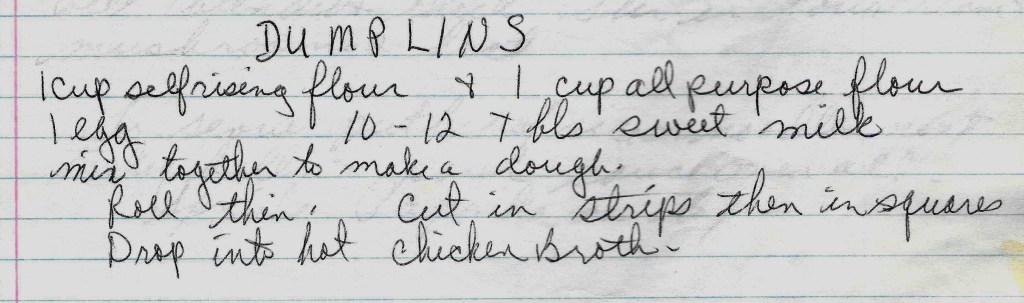 DUMPLINS
1 cup selfrising flour & 1 cup all purpose flour
1 egg 10-12 Tbls sweet milk
mix together to make a dough.
Roll thin. Cut in strips then in squares
Drop into hot chicken broth.